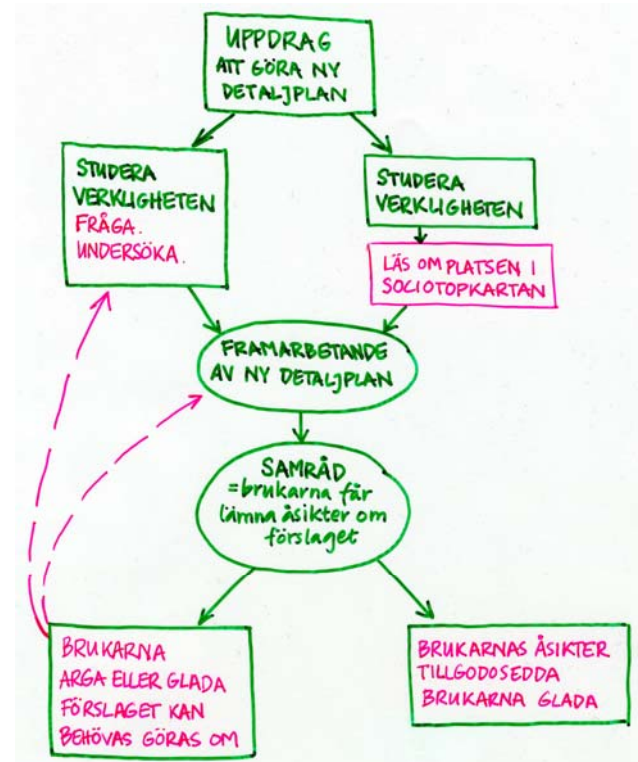 UPPDRAG
ATT GÖRA NY
DETALJPLAN
STUDERA
VERKLIGHETEN
FRÅGA.
UNDERSÖKA.
STUDERA
VERKLIGHETEN
LÄS OM PLATSEN I
SOCIOTOPKARTAN
FRAMARBETANDE
AV NY DETALJPLAN
SAMRÅD
=brukarna får
lämna åsikter om
förslaget
BRUKARNA
ARGA ELLER GLADA
FÖRSLAGET KAN
BEHÖVAS GÖRAS OM
BRUKARNAS ÅSIKTER
TILLGODOSEDDA
BRUKARNA GLADA